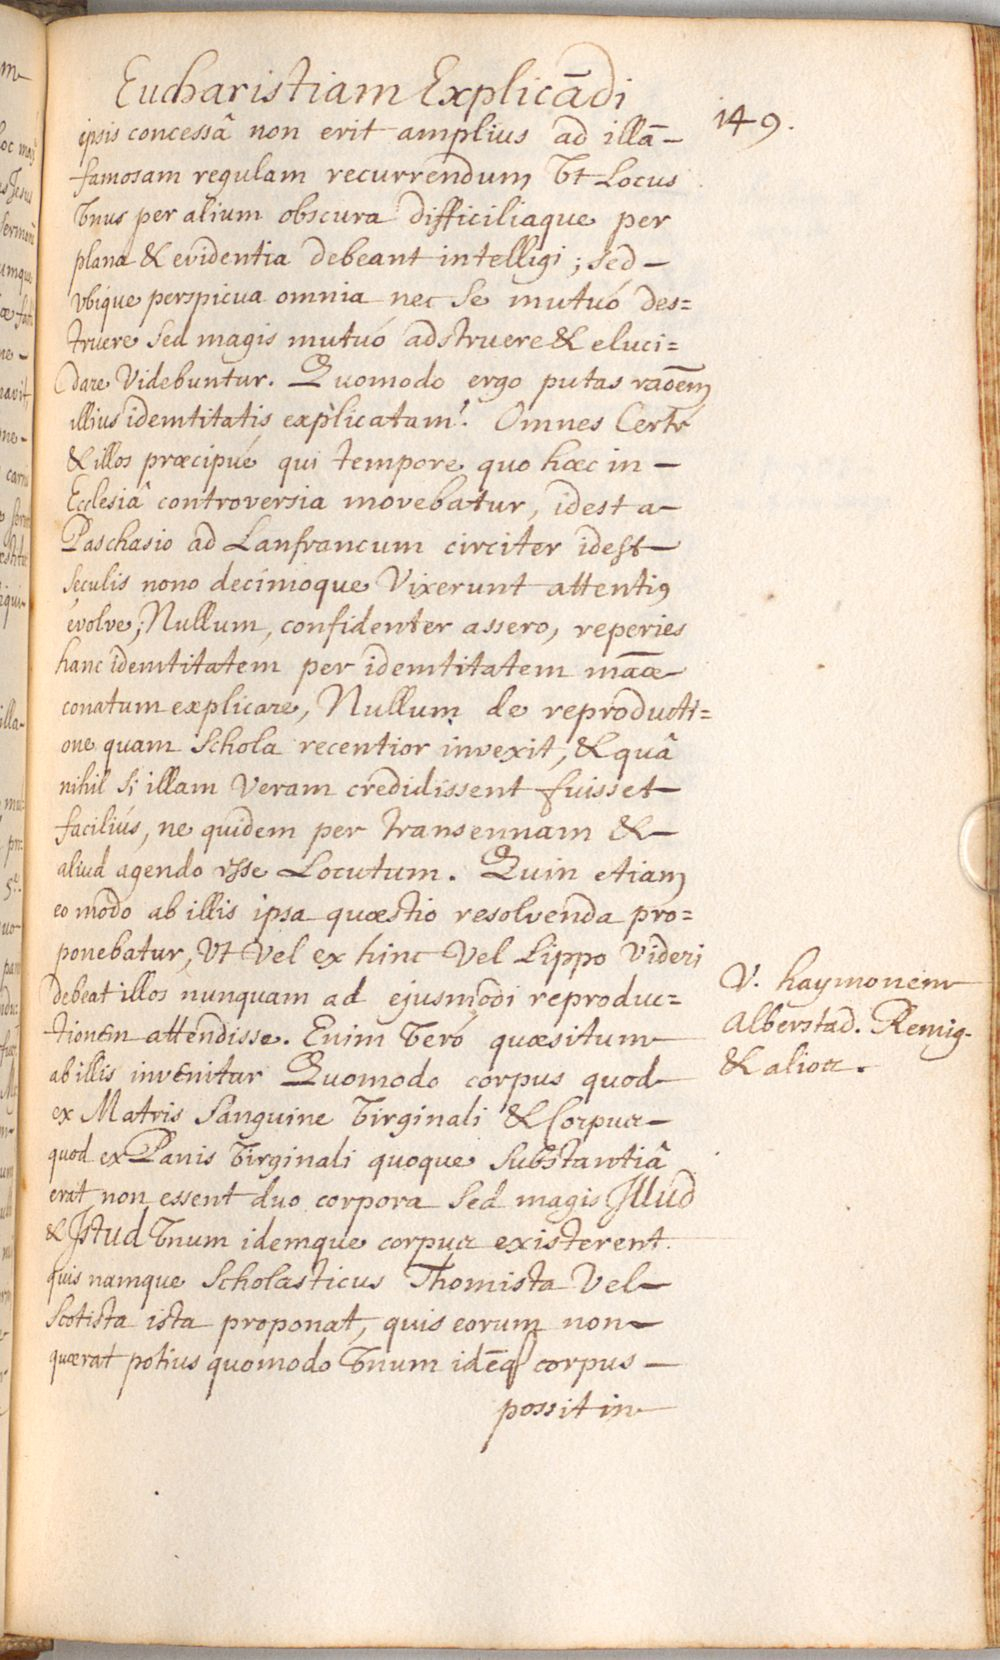 Eucharistiam Explicādi
149.
ipsis concessâ non erit amplius ad illā-
famosam regulam recurrendum Vt Locus
Vnus per alium obscura difficiliaque per
plana & evidentia debeant intelligi; sed-
vbique perspicua omnia nec se mutuó des=
truere sed magis mutuó adstruere & eluci=
dare Videbuntur. Quomodo ergo putas raōem
illius identitatis explicatam! Omnes Certé
& illos præcipué qui tempore quo hæc in-
Ecclesiâ controversia movebatur, idest a-
Paschasio ad Lanfrancum circiter idest-
seculis nono decimoque Vixerunt attentiꝰ
evolve; Nullum, confidenter assero, reperies
hanc identitatem per identitatem māæ
conatum explicare, Nullum de reproducti=
one quam Schola recentior invexit, & quâ
nihil si illam Veram credidissent fuisset-
faciliús, ne quidem per transennam &-
aliud agendo esse Locutum. Quin etiam
eo modo ab illis ipsa quæstio resolvenda pro=
ponebatur, Vt Vel ex hinc Vel Lippo Videri
debeat illos nunquam ad ejusmodi reproduc=
tionem attendisse. Enim Veró quæsitum
ab illis invenitur Quomodo corpus quod
ex Matris Sanguine Virginali & Corpus-
quod ex Panis Virginali quoque Substantiâ
erat non essent duo corpora Sed magis Illud
& Istud Vnum idemque corpus existerent.
quis namque Scholasticus Thomista Vel-
Scotista ista proponat, quis eorum non-
quærat potius quomodo Vnum idēq corpus-
possit in
V. haymonem
Alberstad. Remig.
& alios.